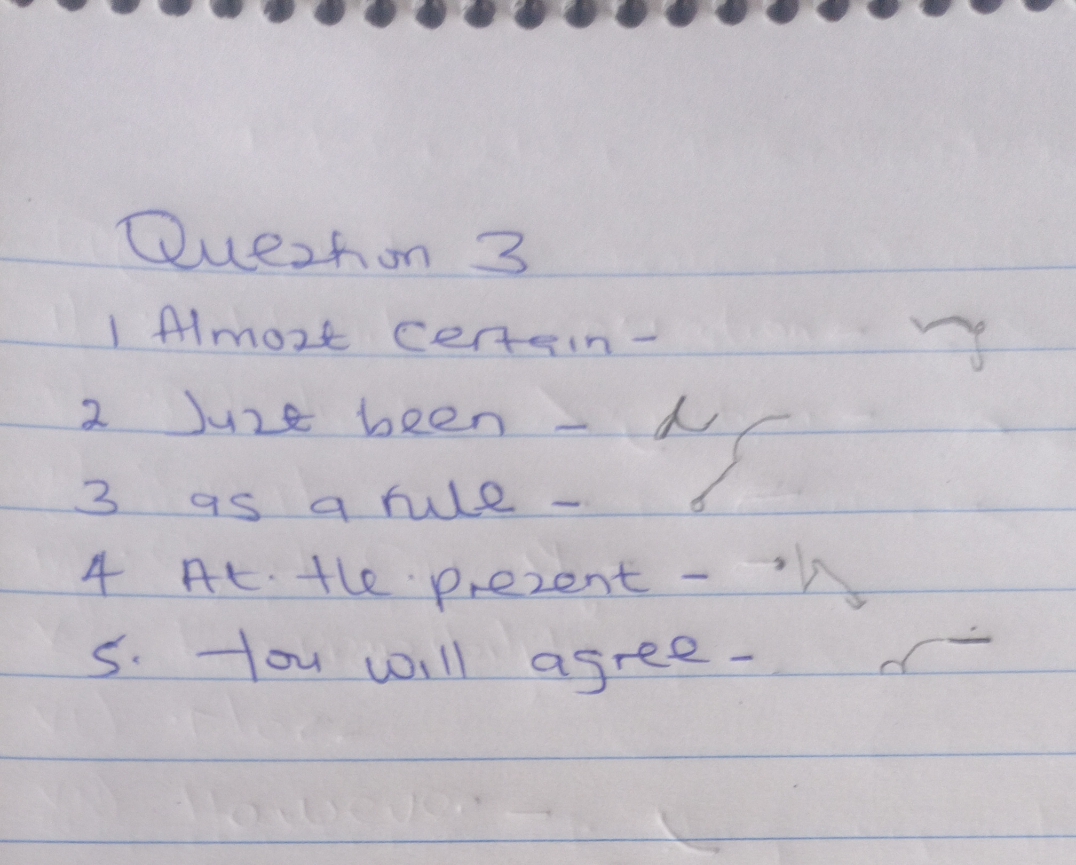 Question 3
1 Almost certain -
2 Just been -
3 as a rule -
4 At the present -
5. You will agree -
However -